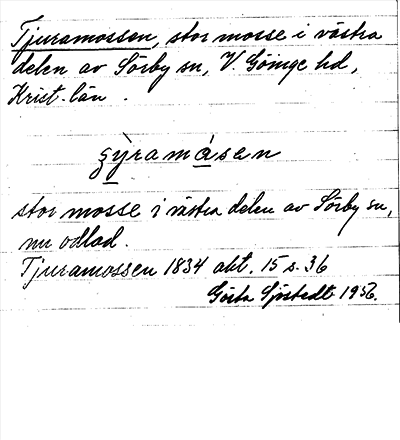 Tjuramossen, stor mosse i västra
delen av Sörby sn, V. Göinge hd,
Krist. län.
ȿỳramásen
stor mosse i västra delen av Sörby sn,
nu odlad.
Tjuramossen 1834 akt. 15 s. 36
Gösta Sjöstedt 1956.